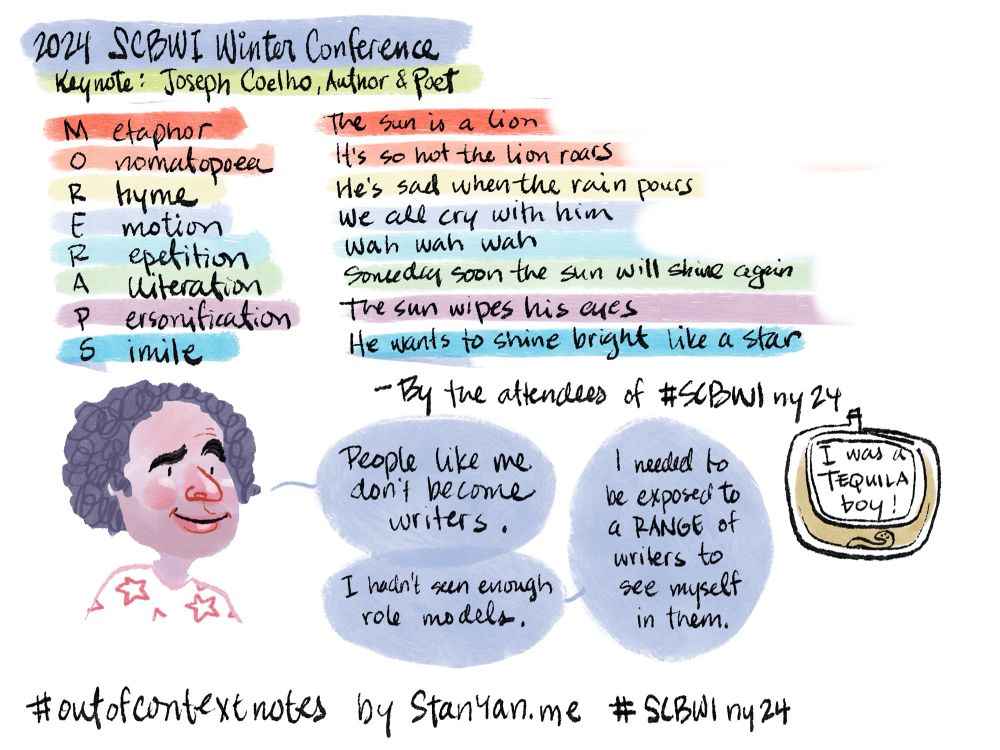 2024 SCBWI Winter Conference
Keynote: Joseph Coelho, Author & Poet
M etaphor The sun is a lion
O nomatopoea It's so hot the lion roars
R hyme He's sad when the rain pours
E motion We all cry with him
R epetition wah wah wah
A lliteration Someday soon the sun will shine again
P ersonification The sun wipes his eyes
S imile He wants to shine bright like a star
- By the attendees of #SCBWIny24
People like me
don't become
writers.
I hadn't seen enough
role models.
I needed to
be exposed to
a RANGE of
writers to
see myself
in them.
I was a
TEQUILA
boy!
#outofcontextnotes by StanYan.me #SCBWIny24